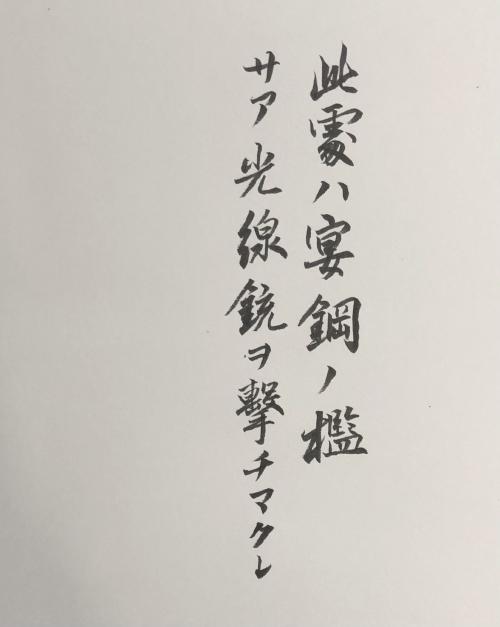 此處ハ宴鋼ノ檻
サア光線銃ヲ擊チマクレ